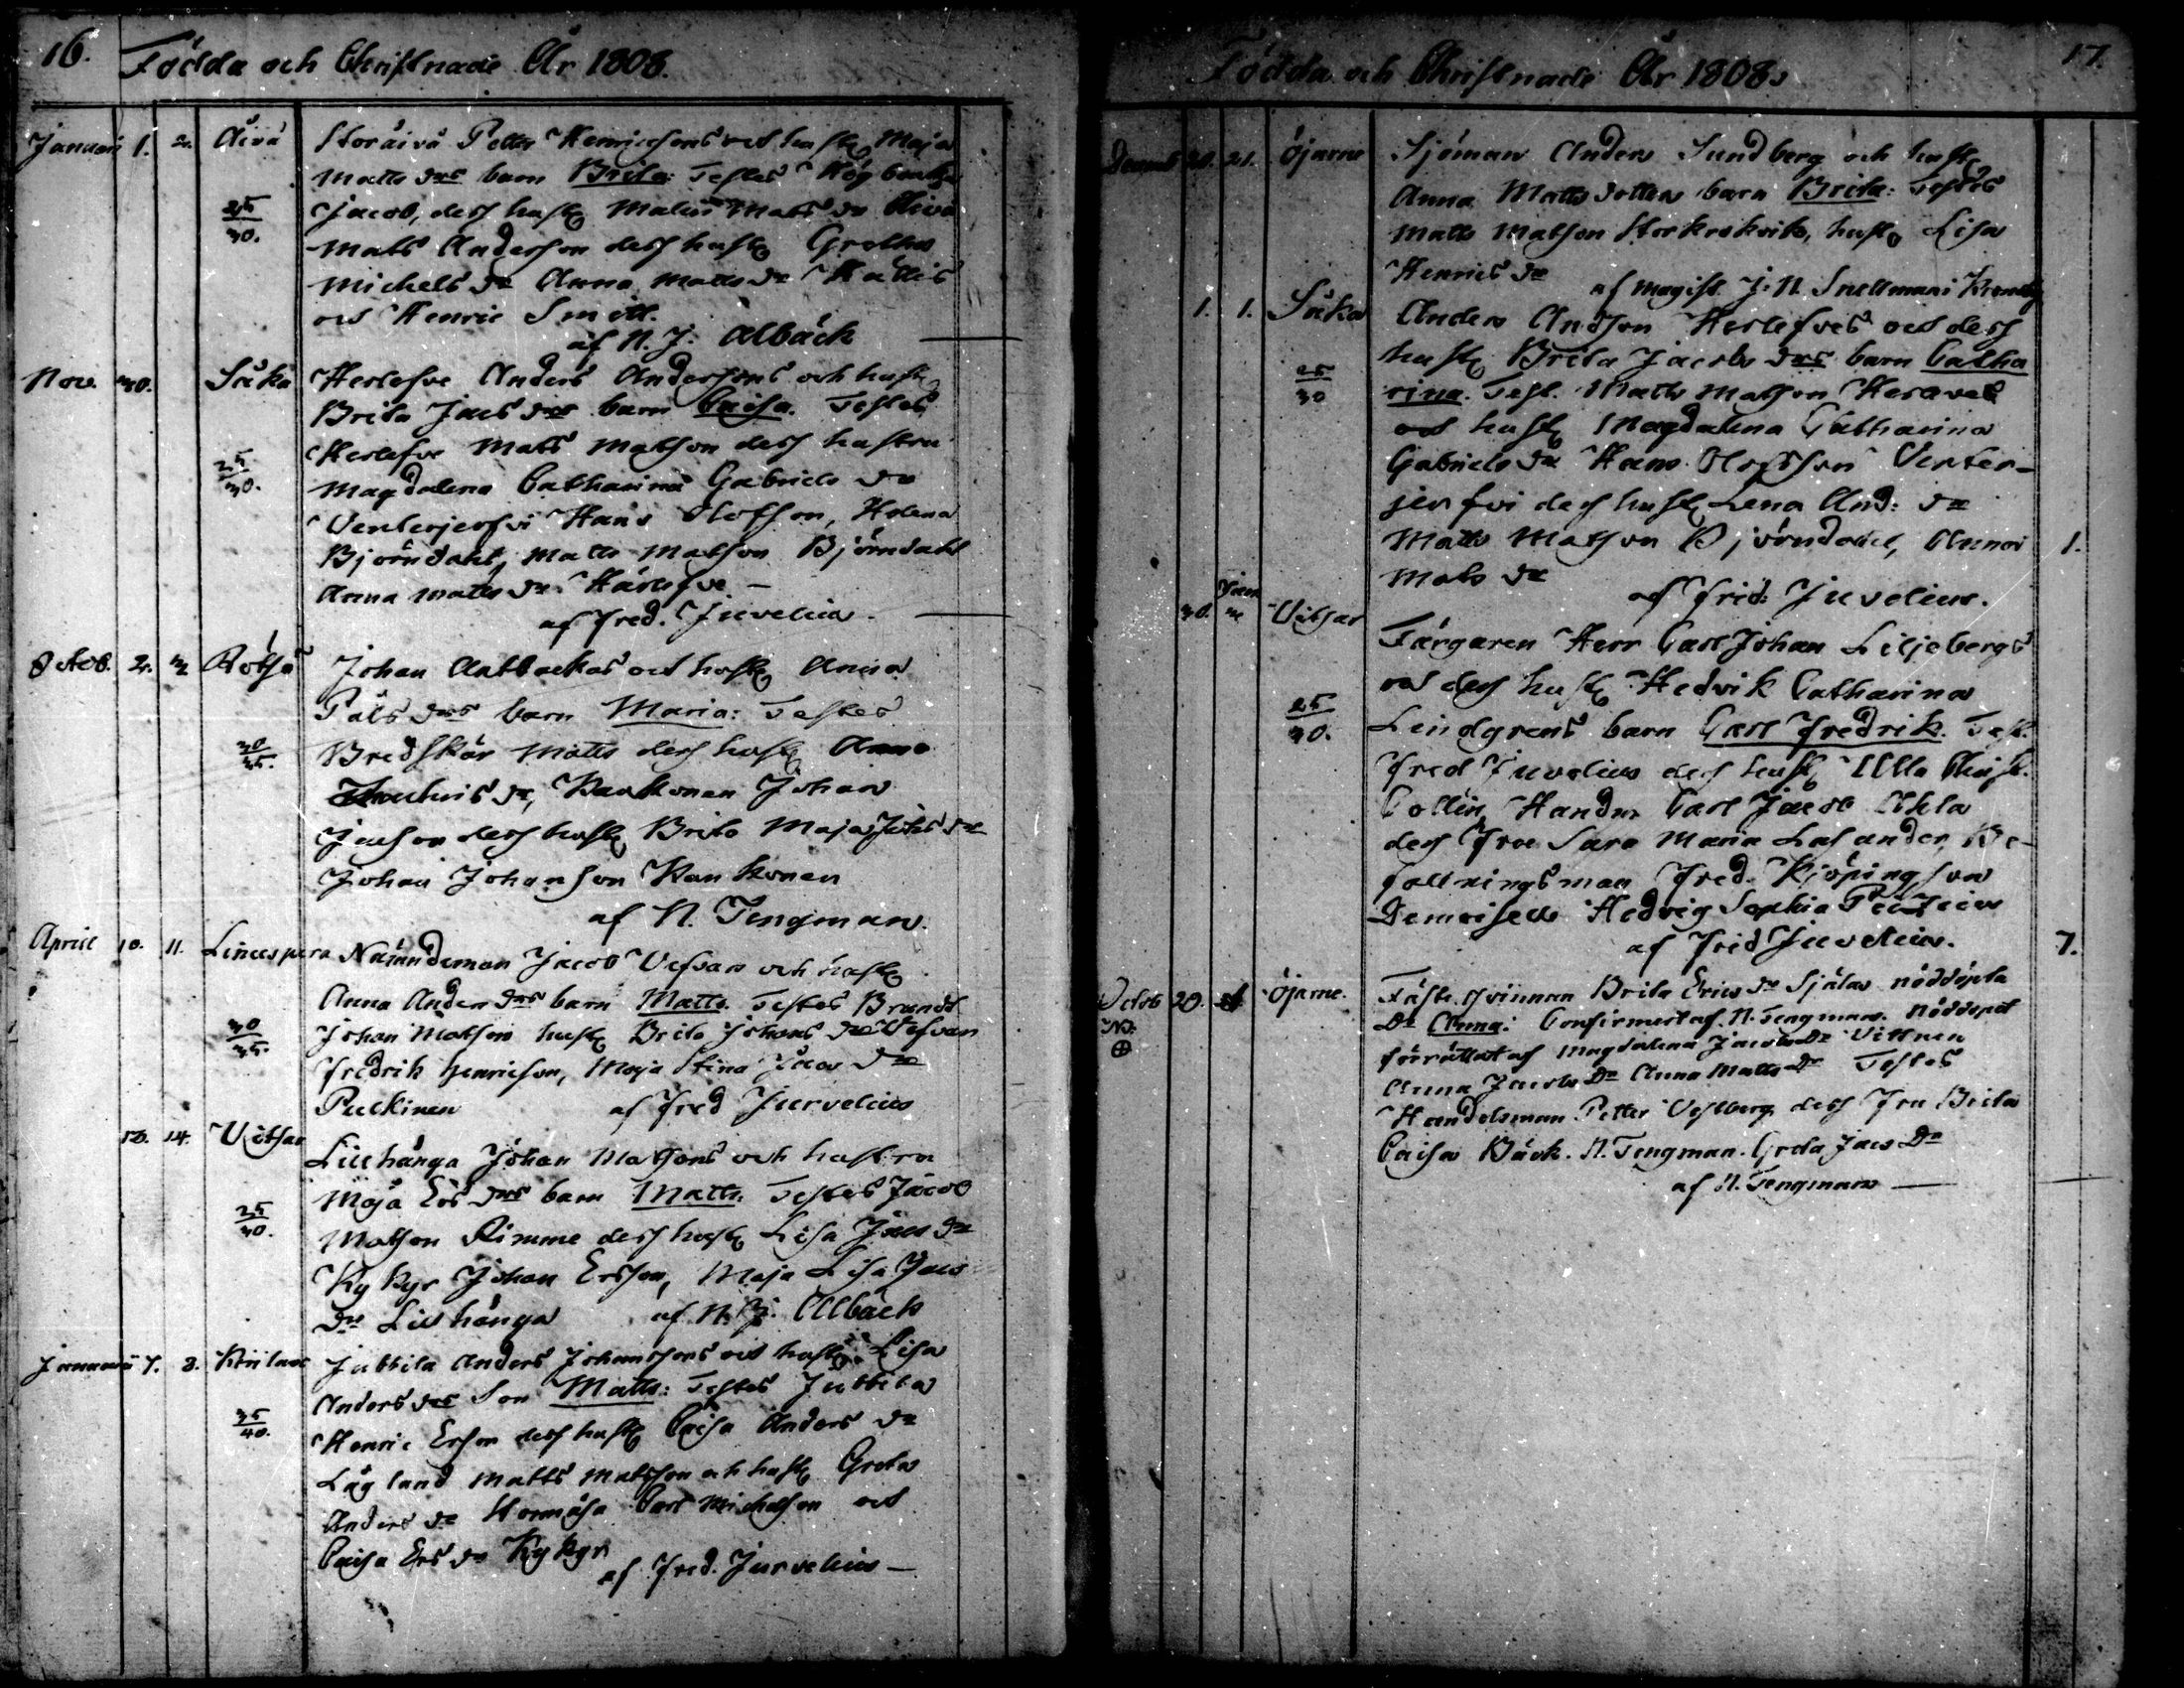 16. Födda och Christnade År 1808.
Januari 1. 2. Åivå Storåivå Petter Henricsons och hust Maja
Matts drs barn Brita: Testes Högbacka
25/30. Jacob, dess hust Malin Mats dr Åivå
Mats Anderson dess hust Gretha
Michels dr Anna Matts dr
och Henric Smitt.
af N. J. Albäck
Nov. 30. Såka Herlefve Anders Andersons och hust
Brita Jacs drs barn Caisa. Testes
Herlefve Mats Matson dess hustru
25/30. Magdalena Catharina Gabriels dr
Venterjerfvi Hans Olofson, Helena
Björndahl, Matts Matson Björndahl
Anna Matts dr Härlefve –
af Fred. Juvelius.
Octob. 2. 3 Rötsö Johan Antbackas och hust Anna
Påls drs barn Maria: Testes
30/35. Bredskär Matts dess hust Anna
dr, Kankonen Johan
Jacson dess hust Brita Maja Johs dr
Johan Johanson Kankonen
af N. Tengman.
April 10. 11. Linusperä Nämndeman Jacob Vefvar och hust
Anna Anders drs barn Matts. Testes Brandt
30/35. Johan Matson hust Brita Johans dr Vefvar
Fredrik Henricson, Maja Stina Jacs dr
Pulkinen af Fred Jurvelius
13. 14. Vitsar Lillhånga Johan Matsons och hustru
Maja Ers drs barn Matts. Testes Jacob
25/30. Matson Rimme dess hust Lisa Jacs dr
Kykyr Johan Erson, Maja Lisa Jacs
dr Lillhånga af N. J. Albäck
Januari 7. 8. Juttila Anders Johanssons och hust Lisa
Anders drs Son Matts: Testes Juttila
35/40. Henric Erson dess hust Caisa Anders dr
Lågland Matts Matsson och hust Greta
Anders dr Stormåsa Carl Michelson och
Caisa Ers dr Kykyr
af Fred. Jurvelius –
Födda och Christnade År 1808. 17.
Decemb 20. 21. Öjarne Sjöman Anders Sundberg och hust
Anna Matts dotters barn Brita. Testes
Matts Matson hust Lisa
Henrics dr af Magist. J. N. Snellman i Kronoby
1. 1. Såka Anders Andson Herlefves och dess
hust Brita Jacobs drs barn Catha
25/30 rina. Test. Matts Matson
och hust Magdalena Catharina
Gabriels dr Hans Olofsson Venter-
jerfvi dess hust Lena And: dr
Matts Matson Björndahl, Anna 1.
Mats dr
af Frid: Juvelius.
30. Vitsar Färgaren Herr Carl Johan Liljebergs
och dess hust Hedvik Catharina
25/30. Lindgrens barn Carl Fredrik. Test.
Fred Juvelius dess hust Ulla Christ.
Collin, Handn Carl Jacob Ahla
dess Fru Sara Maria Lasander, Be-
fallningsman Fred. Kjöpingson
Demoiselle Hedvig Sophia
af Frid Juvelius. 7.
Octob 20. Öjarne. Fäste qvinnan Brita Erics dr Själas nöddöpta
N. dr Anna: Confirmert af N. Tengman. Nöddopet
förrättat af Magdalena Jacobs dr Vittnen
Anna Jacobs dr Anna Matts dr Testes
Handelsman Petter Vestberg dess Fru Brita
Caisa Bäck. N. Tengman. Greta Jacs dr
af N. Tengman –